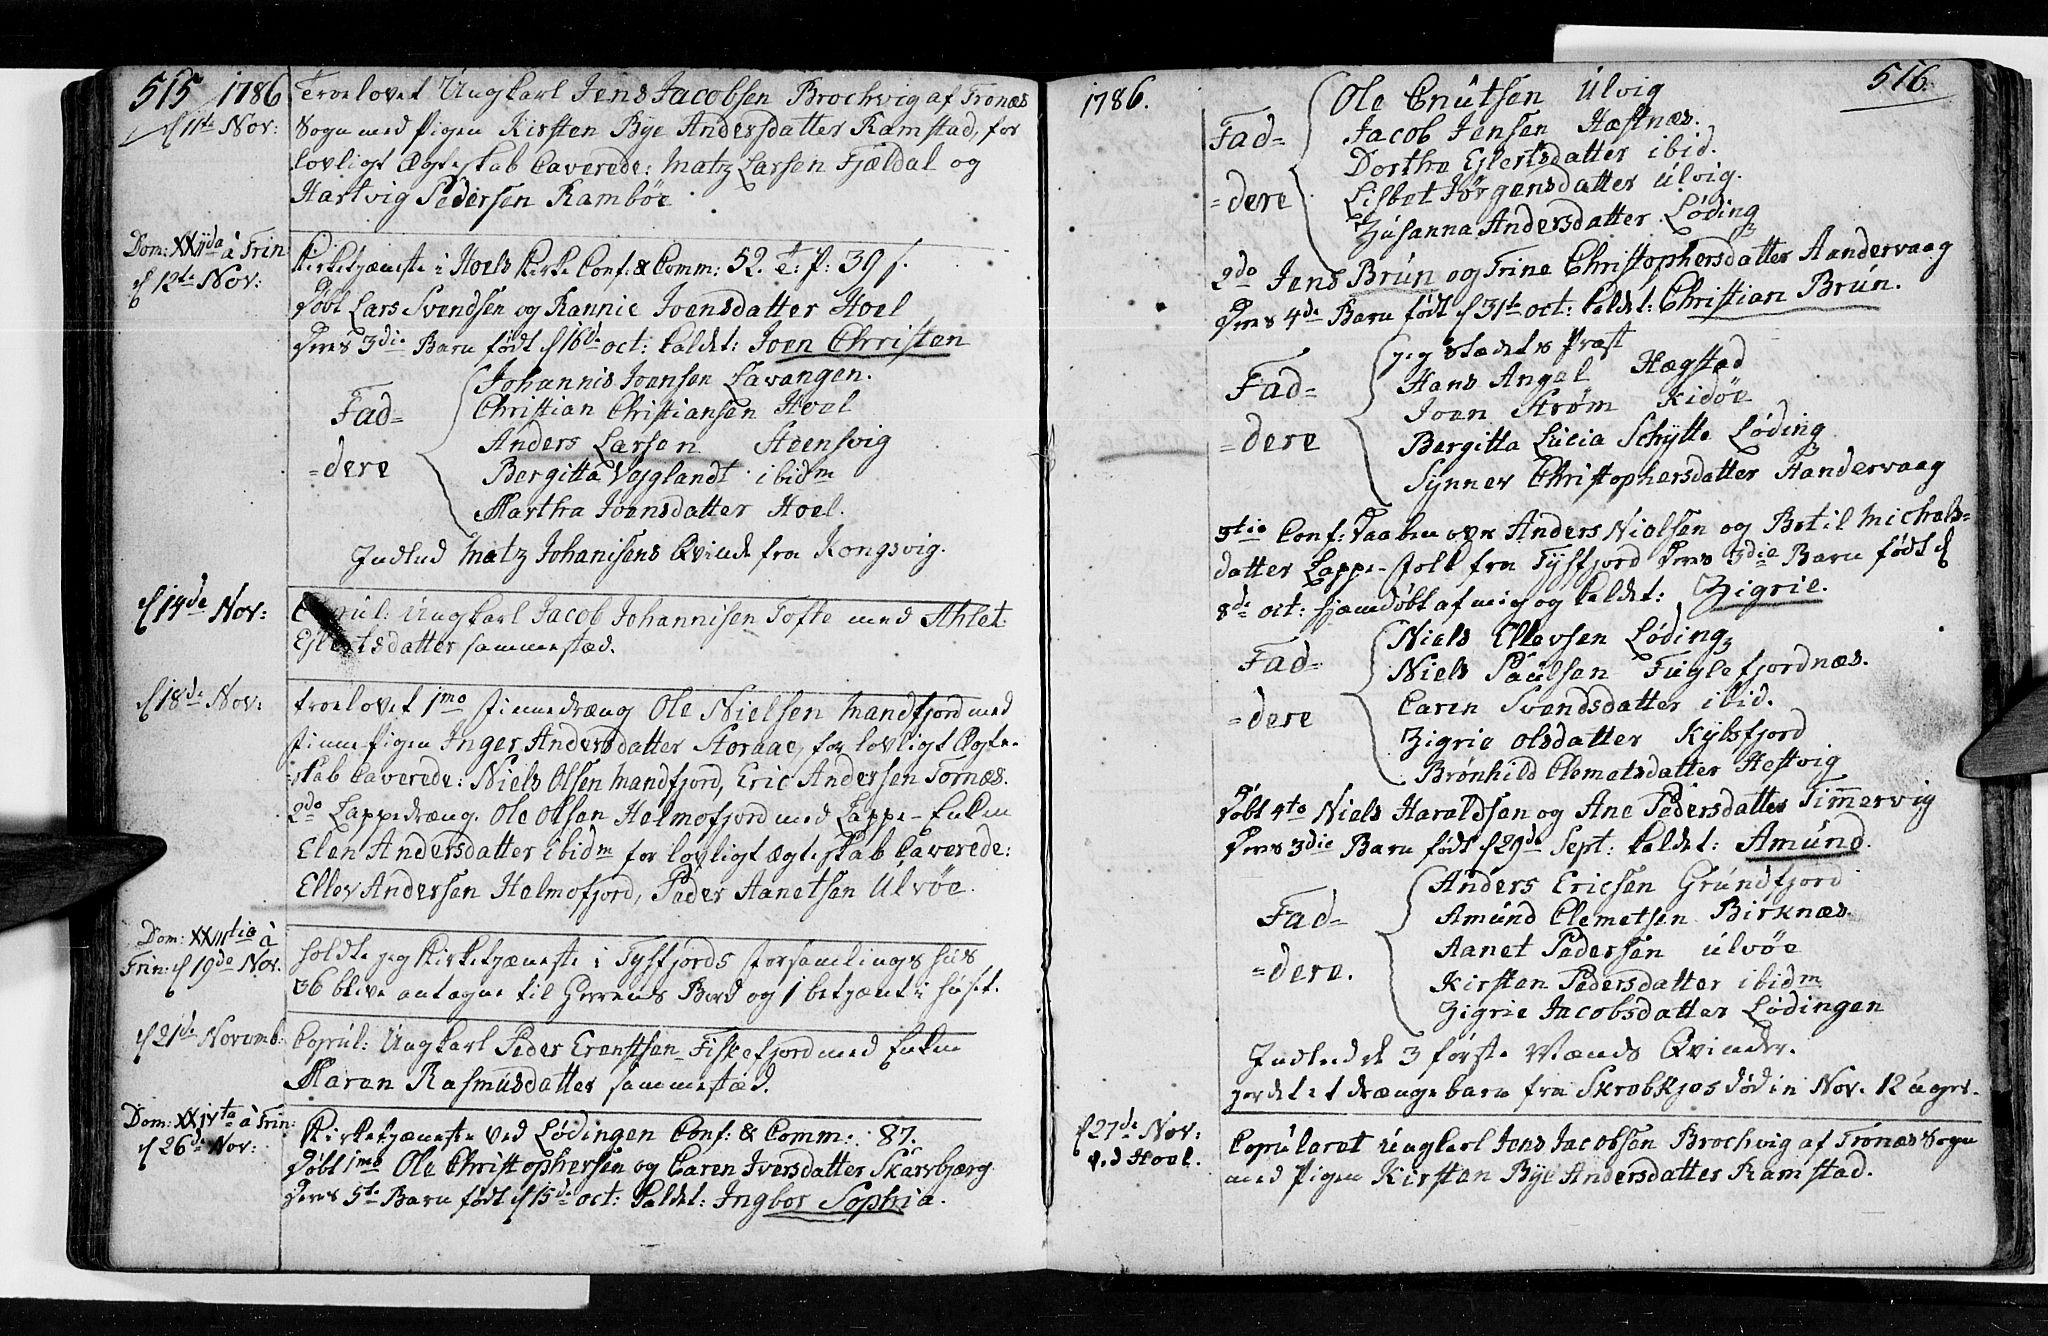 515 1786
d 11te Nov: Troelovet Ungkarl Jens Jacobsen Brochvig af Tronæs
Sogn med Pigen Kirsten Bye Andersdatter Ramstad, for
lovligt Ægteskab Caverede: Matz Larsen Fjældal og
Hartvig Pedersen Rambøe
Dom: XXIIda à Trin
d 12te Nov:
Kirketjæneste i Hoels Kirke Conf: & Comm: 52. T: P: 39 s.
Døbt Lars Svendsen og Rannie Ivensdatter Hoel
Deres 3die Barn født d 16de oct: kaldet: Joen Christen
Fad=
=dere
Johannis Joensen Lavangen.
Christian Christiansen Hoel
Anders Larsen Steensvig
Bergitta Vejglandt ibidm
Martha Ivensdatter Hoel.
Indled Matz Johanisens Qvinde fra Kongsvig.
d 14de Nov:
Copul: Ungkarl Jacob Johannisen Tofte med Athlet
Ejlertsdatter sammestæd.
d 18de Nov:
troelovet 1mo Finnedræng Ole Nielsen Mandfjord med
Finne Pigen Inger Andersdatter Storaae, for lovligt Ægte-
skab Caverede: Niels Olsen Mandfjord, Eric Andersen Tornæs.
2do Lappedræng Ole Olsen Helmofjord med Lappe-Enken
Elen Andersdatter ibidm for lovligt Ægteskab Caverede:
Ellev Andersen Helmofjord, Peder Aanetsen Ulvøe.
Dom: XXIIItia à
Trin: d 19de Nov.
holdte jeg Kirketjæneste i Tysfjords Forsamlings Huus
36 bleve antagne til Herrens Bord og 1 betjænt i Huset.
d 21de Novemb:
Copul: Ungkarl Peder Erentsen Fiskefjord med Enken
Maren Rasmusdatter sammestæd.
Dom: XXIVta à Trin:
d 26de Nov:
Kirketjæneste ved Lødingen Conf: & Comm: 87.
Døbt 1mo Ole Christophersen og Caren Iversdatter Skarvbjerg
Deres 5te Barn født d 15de oct: kaldet: Ingbor Sophia.
1786.
516.
Fad=
=dere
Ole Cnutsen Ulvig
Jacob Jensen Hæstnæs.
Dorthe Ejlertsdatter ibid.
Lisbet Jørgensdatter Ulvig.
Zusanna Andersdatter Løding
2do Jens Brun og Trine Christophersdatter Aandervaag
Deres 4de Barn født d 31te oct: kaldet: Christian Brun.
Fad=
=dere
jeg stædets Præst
Hans Angel Hægstad
Joen Strøm Kidøe
Bergitta Lucia Schytte Løding
Synnev Christophersdatter Aandervaag
3tio Conf: Daaben over Anders Nielsen og Betil Michels=
datter Lappe-Folk fra Tysfjord Deres 3die Barn født d
8de oct: hjemdøbt af mig og kaldet: Zigrie.
Fad=
dere
Niels Ellevsen Løding
Niels Paulsen Fuglefjordnæs.
Caren Svendsdatter ibid.
Zigrie Olsdatter Kylsfjord
Brønhild Clemetsdatter Hestvig
Døbt 4to Niels Haraldsen og Ane Pedersdatter Timmervig
Deres 3die Barn født d 29de Sept: kaldet: Amund.
Fad=
=dere.
Anders Ericsen Grundfjord
Amund Clemetsen Birknæs
Aanet Pedersen Ulvøe
Kirsten Pedersdatter ibidm
Zigrie Jacobsdatter Lødingen
Indled de 3 første Mænds Qvinder.
Jordet et drængebarn fra Skrobkjos død in Nov. 12 uger.
d 27de Nov:
ved Hoel.
Copuleret Ungkarl Jens Jacobsen Brochvig af Tronæs Sogn
med Pigen Kirsten Bye Andersdatter Ramstad.